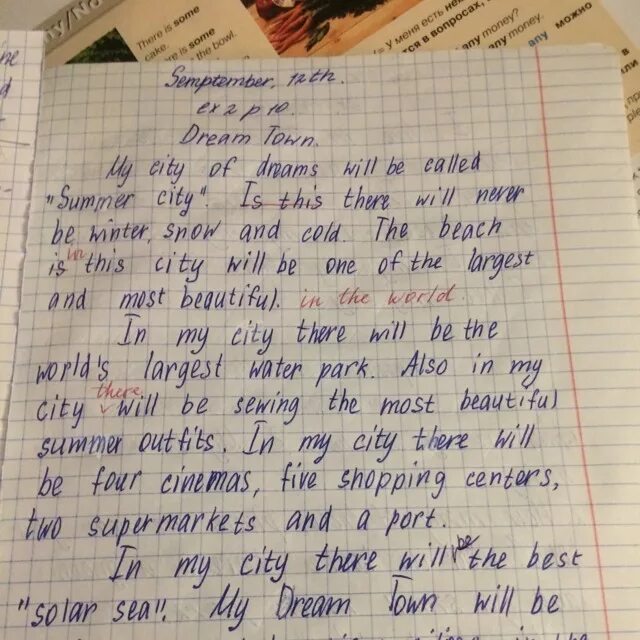 There is some
cake.
There is some
in the bowl.
У меня есть
в вопросах,
any money?
any money.
any
можно
Semptember, 12th.
ex 2 p 10.
Dream Town.
My city of dreams will be called
"Summer city". Is this there will never
be winter, snow and cold. The beach
is in this city will be one of the largest
and most beautiful. in the world.
In my city there will be the
world's largest water park. Also in my
city there will be sewing the most beautiful
summer outfits. In my city there will
be four cinemas, five shopping centers,
two supermarkets and a port.
In my city there will be the best
"solar sea". My Dream Town will be